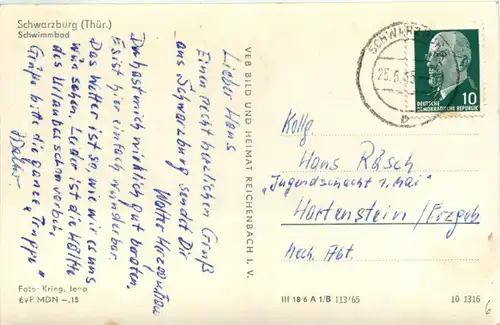 Schwarzburg (Thür.)
Schwimmbad
Lieber Hans
Einen recht herzlichen Gruß
aus Schwarzburg sendet Dir
Walter
Du hast mich wirklich gut beraten.
Es ist hier einfach wunderbar.
Das Wetter ist so, wie wir es uns
wünschen. Leider ist die Hälfte
des Urlaubes schon vorbei.
Grüße bitte die ganze Truppe
Foto: Kring, Jena
EVP MDN –,15
VEB BILD UND HEIMAT REICHENBACH I. V.
SCHWARZB
25.6.65
b
DEUTSCHE
DEMOKRATISCHE REPUBLIK
10
Kollg.
Hans Räsch
„Jugendschacht 1. Mai"
Hartenstein/Erzgeb
Mech. Abt.
III 18 6 A 1/B 113/65
10 1316
6